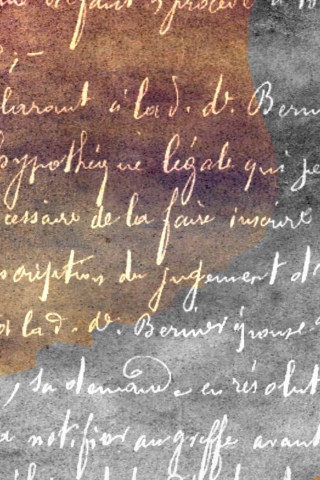 défaut
à la d. de. Berni
hypothéque légale qui pe
cessaire de la faire inscrire
scription du jugement d
à la d. de. Bernier épouse
, sa demande en résolut
notifier au greffe avant